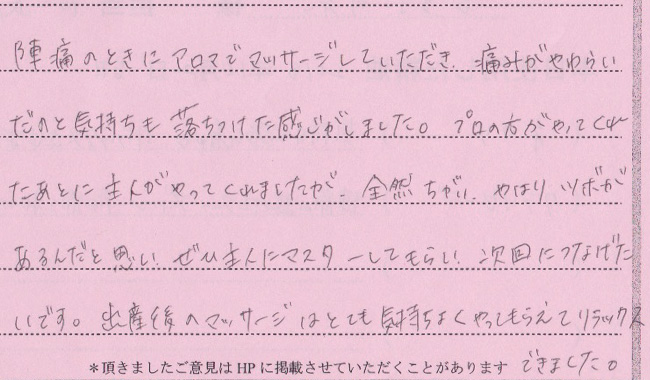 陣痛のときにアロマでマッサージしていただき、痛みがやわらい
だのと気持ちも落ちつけた感じがしました。プロの方がやってくれ
たあとに主人がやってくれましたが、全然ちがい、やはりツボが
あるんだと思い、ぜひ主人にマスターしてもらい、次回につなげた
いです。出産後のマッサージはとても気持ちよくやってもらえてリラックス
できました。
＊頂きましたご意見はHPに掲載させていただくことがあります